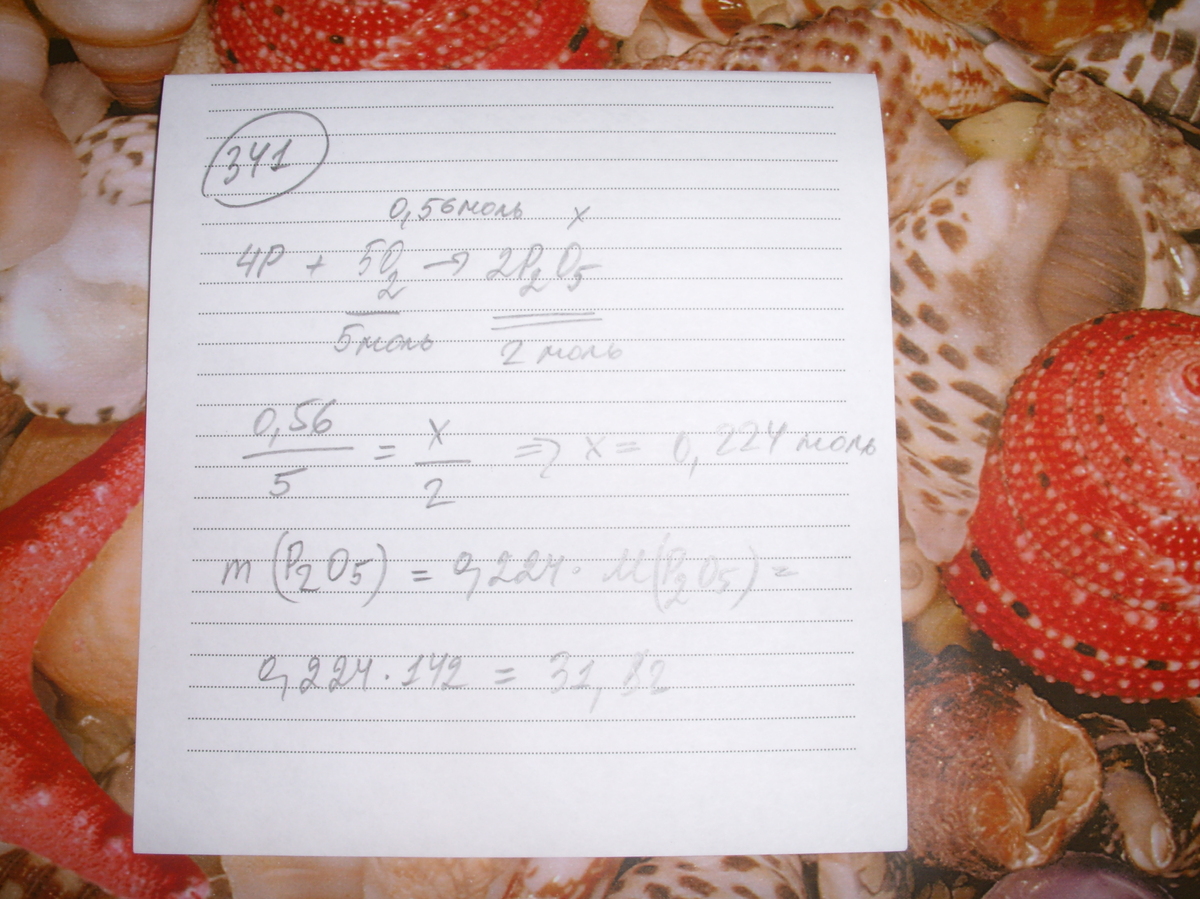 341
0,56 моль x
4P + 5O2 → 2P2O5
5 моль 2 моль
0,56/5 = x/2 => x = 0,224 моль
m (P2O5) = 0,224 · M(P2O5) =
0,224 · 142 = 31,8г